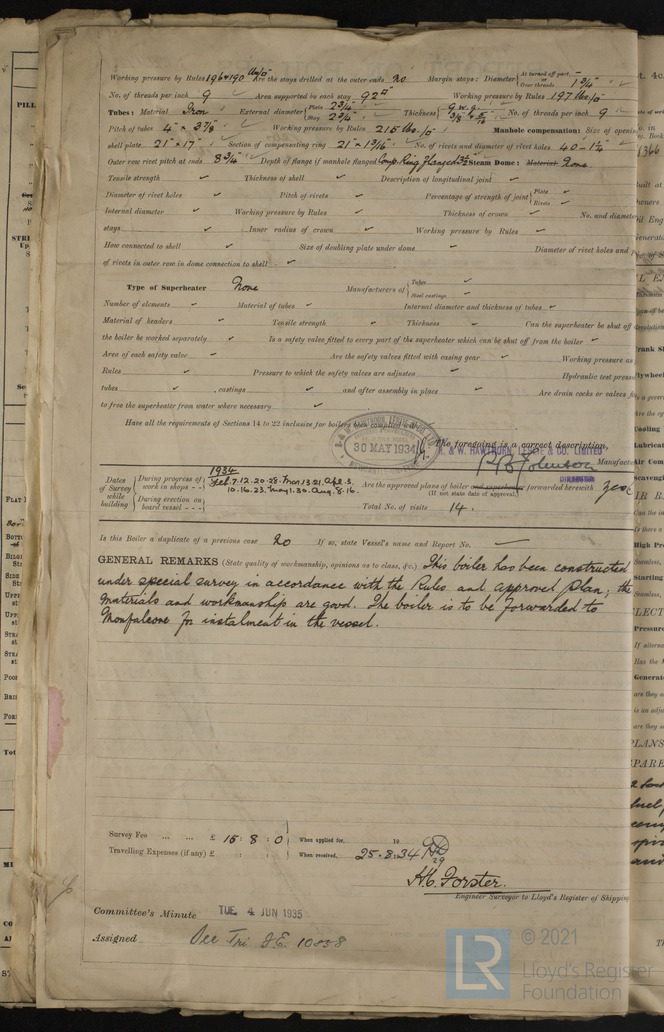 Working pressure by Rules 196 & 190 lbs/□" Are the stays drilled at the outer ends No Margin stays: Diameter { At turned off part, Over threads 1 3/4"
No. of threads per inch 9 Area supported by each stay 92 □" Working pressure by Rules 197 lbs/□"
Tubes: Material Iron External diameter { Plate 2 3/4" Stay 2 3/4" Thickness { 9 w.g. 3/8" & 5/16 No. of threads per inch 9
Pitch of tubes 4" × 3 7/8" Working pressure by Rules 215 lbs./□" Manhole compensation: Size of openin
shell plate 21" × 17" Section of compensating ring 21" × 1 3/16" No. of rivets and diameter of rivet holes 40 - 1 1/4"
Outer row rivet pitch at ends 8 3/4" Depth of flange if manhole flanged Comp. Ring Flanged 3 1/2 Steam Dome: Material None
Tensile strength Thickness of shell Description of longitudinal joint
Diameter of rivet holes Pitch of rivets Percentage of strength of joint { Plate Rivets
Internal diameter Working pressure by Rules Thickness of crown No. and diamete
stays Inner radius of crown Working pressure by Rules
How connected to shell Size of doubling plate under dome Diameter of rivet holes and
of rivets in outer row in dome connection to shell
Type of Superheater None Manufacturers of { Tubes Steel castings
Number of elements Material of tubes Internal diameter and thickness of tubes
Material of headers Tensile strength Thickness Can the superheater be shut off
the boiler be worked separately Is a safety valve fitted to every part of the superheater which can be shut off from the boiler
Area of each safety valve Are the safety valves fitted with easing gear Working pressure as
Rules Pressure to which the safety valves are adjusted Hydraulic test press
tubes , castings and after assembly in place Are drain cocks or valves fi
to free the superheater from water where necessary
Have all the requirements of Sections 14 to 22 inclusive for boilers been complied with
30 MAY 1934
The foregoing is a correct description,
R. & W. HAWTHORN, LESLIE & CO. LIMITED
Manufactu
1934
Dates of Survey while building { During progress of work in shops - - Feb. 7. 12. 20. 28. Mar. 13. 21. Apl. 3.
During erection on board vessel - - - 10. 16. 23. May 1. 30. Aug. 8. 16.
Are the approved plans of boiler and superheater forwarded herewith Yes
(If not state date of approval.)
Total No. of visits 14.
Is this Boiler a duplicate of a previous case No If so, state Vessel's name and Report No.
GENERAL REMARKS (State quality of workmanship, opinions as to class, &c.) This boiler has been constructed
under special survey in accordance with the Rules and approved plan; the
materials and workmanship are good. The boiler is to be forwarded to
Monfalcone for instalment in the vessel.
Survey Fee ... ... £ 15 : 8 : 0 When applied for, 19
Travelling Expenses (if any) £ : : When received, 25.8.34
29
H.C. Forster.
Engineer Surveyor to Lloyd's Register of Shipping
Committee's Minute TUE. 4 JUN 1935
Assigned See Tri F.E. 10838
LR © 2021
Lloyd's Register
Foundation